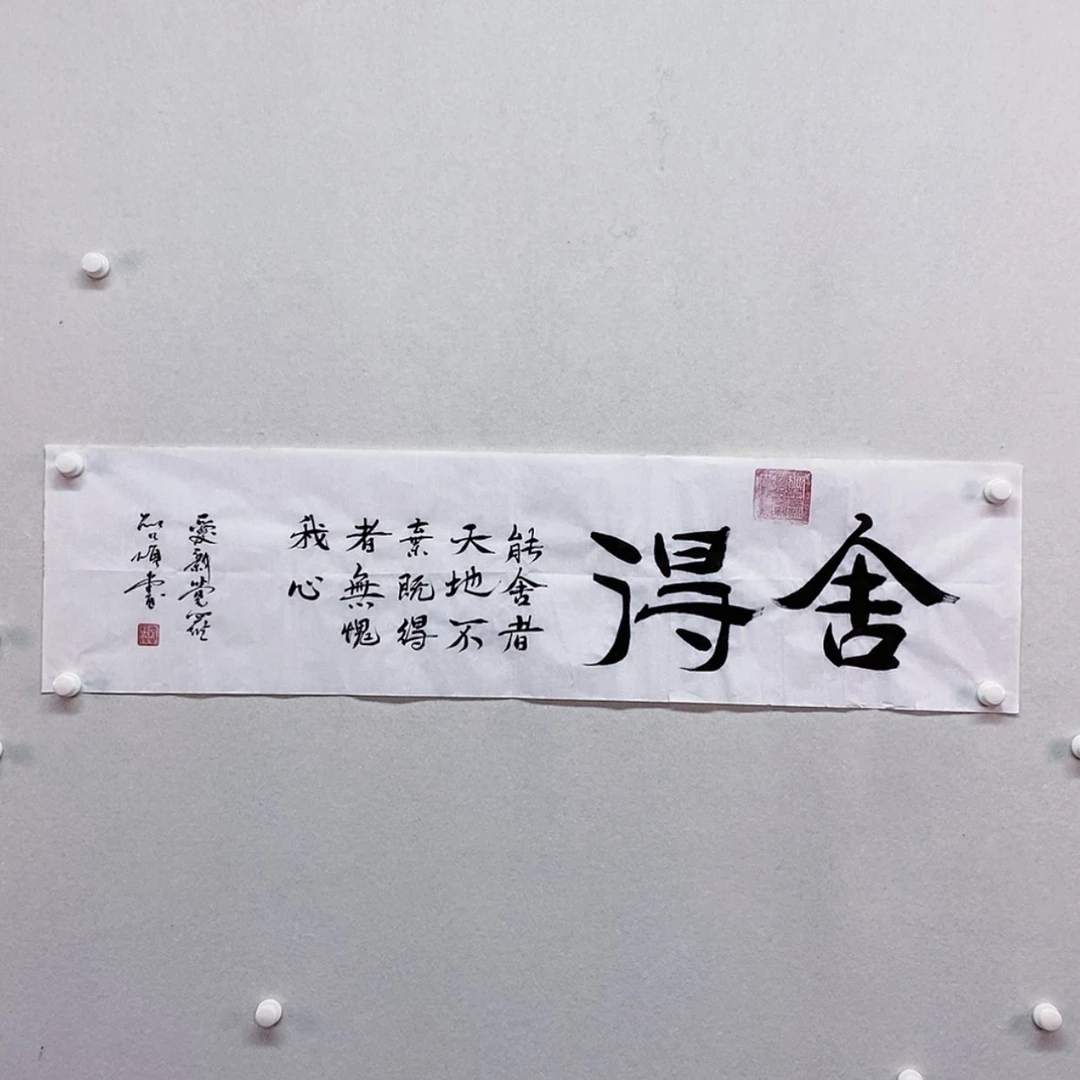 舍得
能舍者
天地不
棄既得
者無愧
我心
愛新覺羅
啟順書